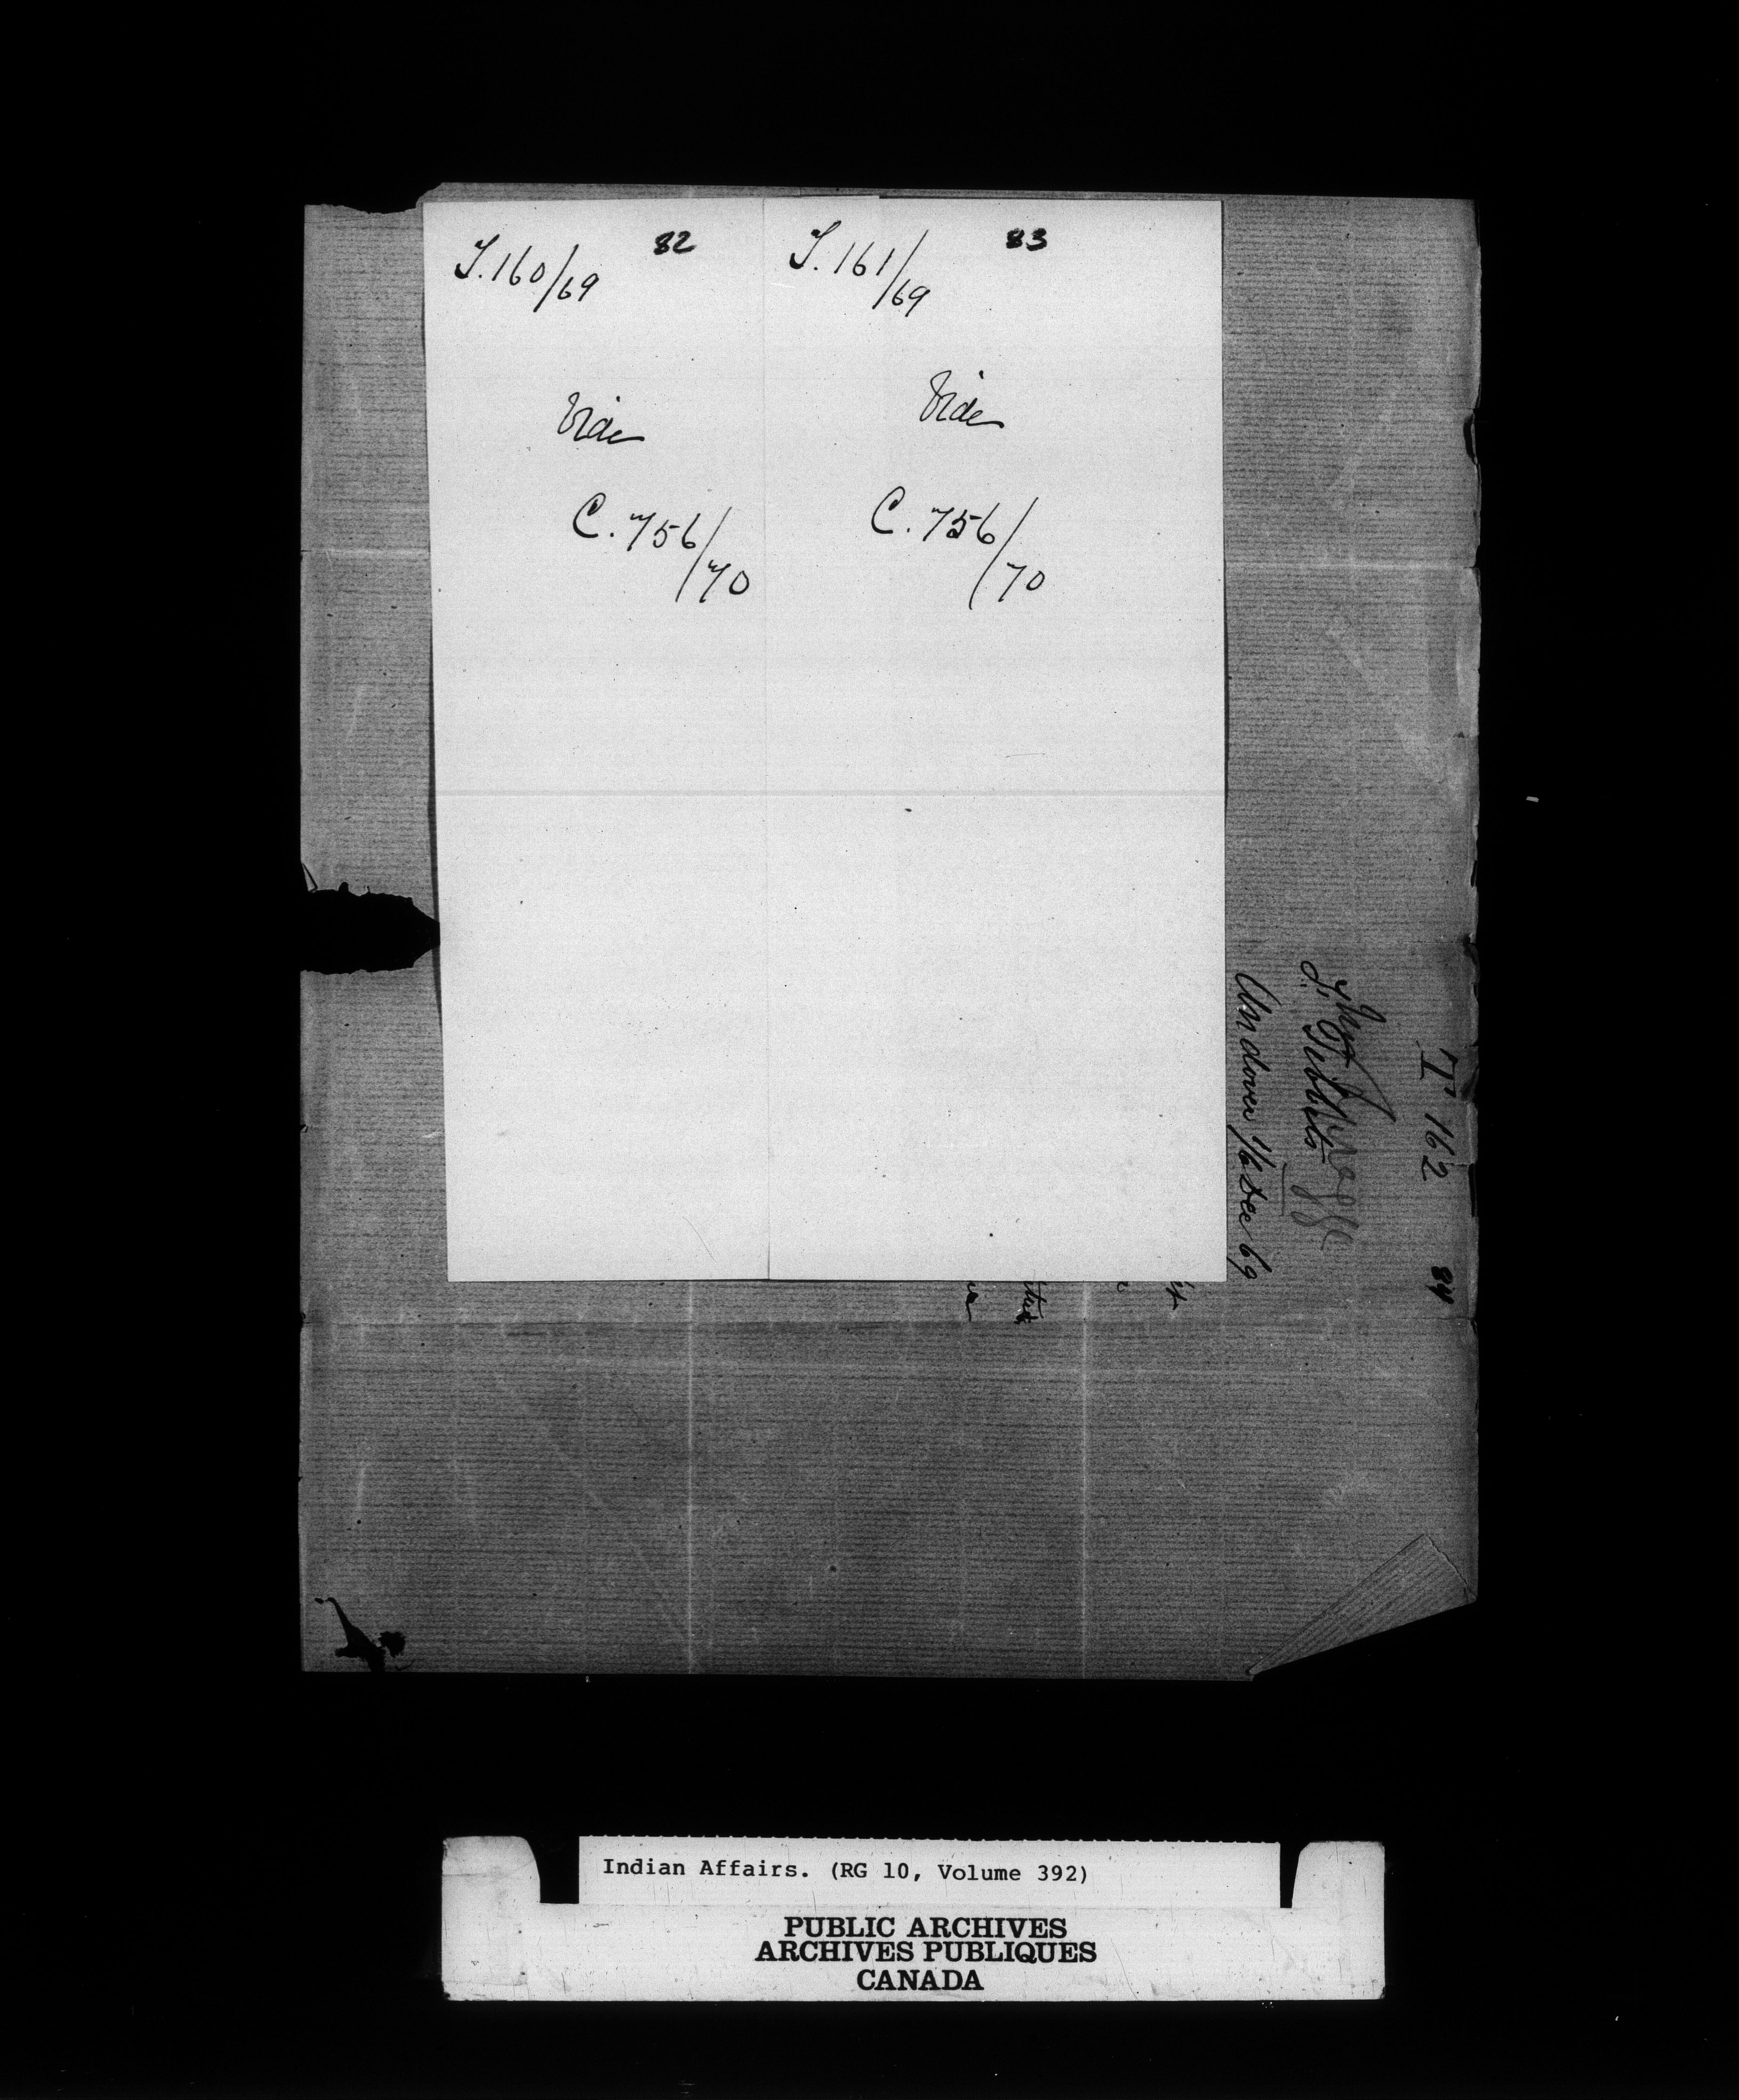 82
T. 160/69
Vide
C. 756/70
83
T. 161/69
Vide
C. 756/70
T 162
84
J. Tibbits
Andover 16 Dec 69
Indian Affairs. (RG 10, Volume 392)
PUBLIC ARCHIVES
ARCHIVES PUBLIQUES
CANADA